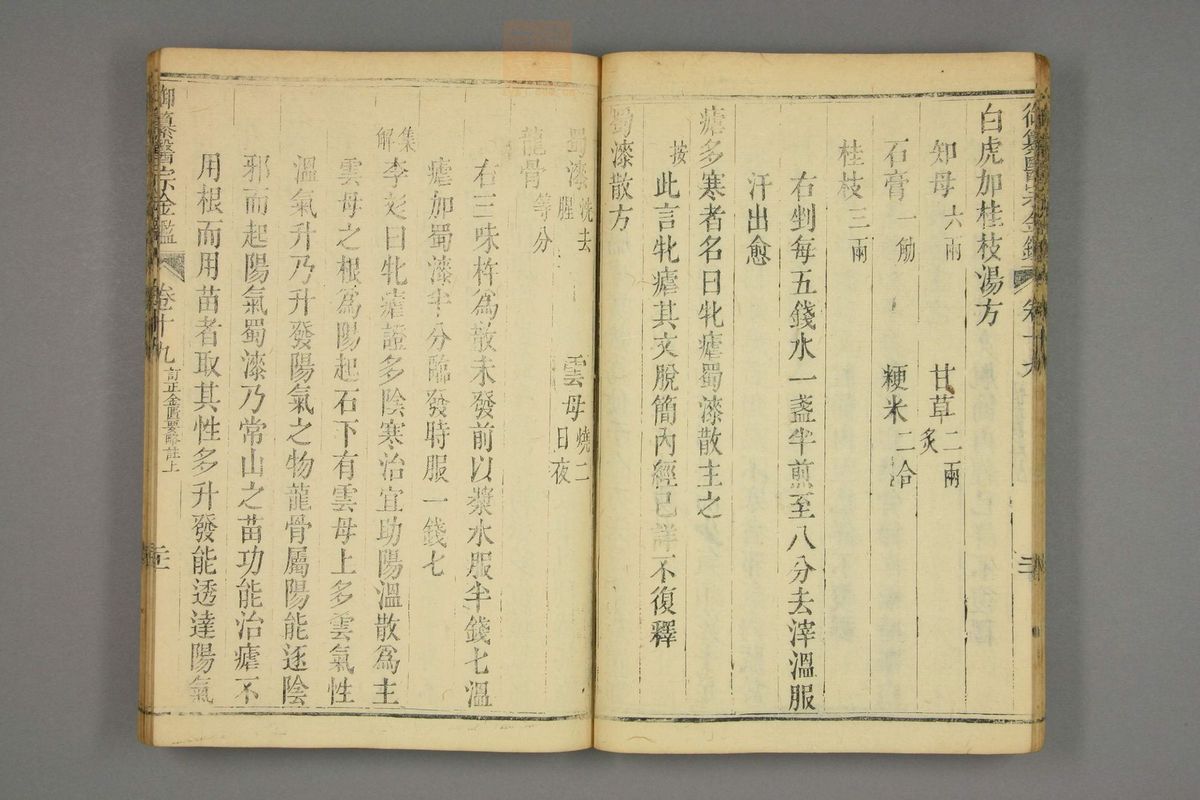 御纂醫宗金鑑 卷十九
白虎加桂枝湯方
知母六兩 甘草二兩炙
石膏一觔 粳米二合
桂枝三兩
右剉每五錢水一盞半煎至八分去滓溫服
汗出愈
瘧多寒者名曰牝瘧蜀漆散主之
按此言牝瘧其文脫簡內經已詳不復釋
蜀漆散方
蜀漆洗去腥 雲母燒二日夜
龍骨等分
右三味杵為散未發前以漿水服半錢七溫
瘧加蜀漆半分臨發時服一錢七
集解李彣曰牝瘧證多陰寒治宜助陽溫散為主
雲母之根為陽起石下有雲母上多雲氣性
溫氣升乃升發陽氣之物龍骨屬陽能逐陰
邪而起陽氣蜀漆乃常山之苗功能治瘧不
用根而用苗者取其性多升發能透達陽氣
御纂醫宗金鑑 卷十九 訂正金匱要略註上